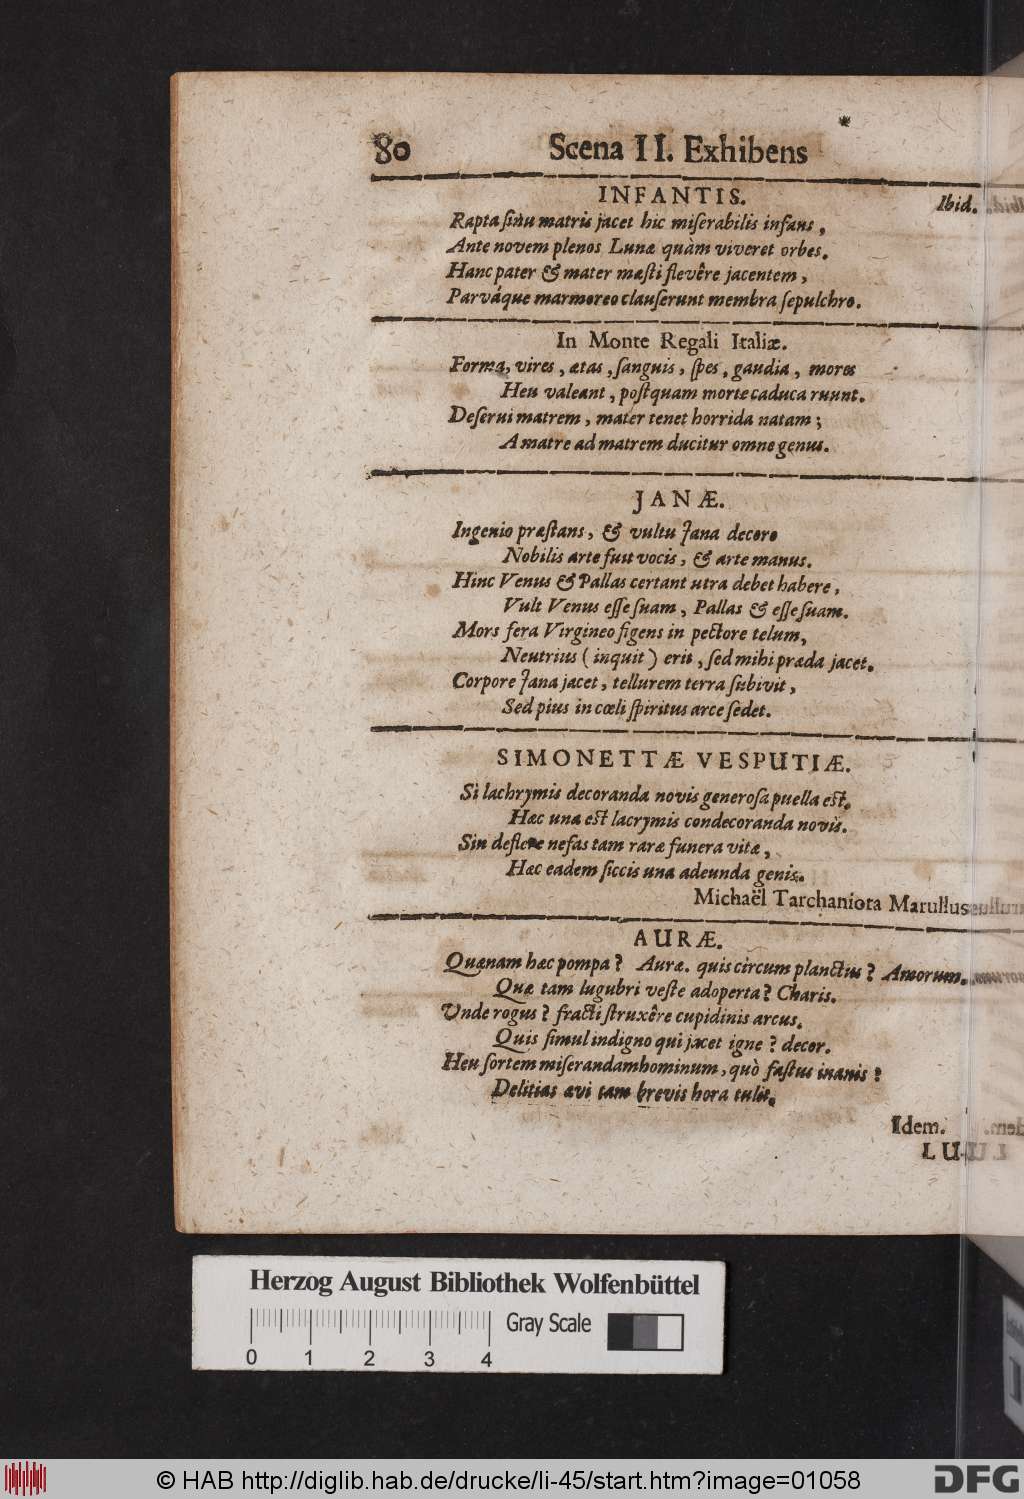 80 Scena II. Exhibens
INFANTIS. Ibid.
Rapta ſinu matris jacet hic miſerabilis infans,
Ante novem plenos Lunæ quàm viveret orbes.
Hanc pater & mater mæſti flevêre jacentem,
Parváque marmoreo clauſerunt membra ſepulchro.
In Monte Regali Italiæ.
Forma, vires, ætas, ſanguis, ſpes, gaudia, mores
Heu valeant, poſtquam morte caduca ruunt.
Deſerui matrem, mater tenet horrida natam;
A matre ad matrem ducitur omne genus.
JANÆ.
Ingenio præſtans, & vultu Jana decoro
Nobilis arte fuit vocis, & arte manus.
Hinc Venus & Pallas certant utra debet habere,
Vult Venus eſſe ſuam, Pallas & eſſe ſuam.
Mors fera Virgineo figens in pectore telum,
Neutrius (inquit) erit, ſed mihi præda jacet.
Corpore Jana jacet, tellurem terra ſubivit,
Sed pius in cœli ſpiritus arce ſedet.
SIMONETTÆ VESPUTIÆ.
Si lachrymis decoranda novis generoſa puella eſt,
Hæc una eſt lacrymis condecoranda novis.
Sin deflere nefas tam raræ funera vitæ,
Hæc eadem ſiccis una adeunda genis.
Michaël Tarchaniota Marullus
AURÆ.
Quænam hæc pompa? Auræ. quis circum planctus? Amorum.
Quæ tam lugubri veſte adoperta? Charis.
Unde rogus? fracti ſtruxêre cupidinis arcus.
Quis ſimul indigno qui jacet igne? decor.
Heu ſortem miſerandam hominum, quò faſtus inanis?
Delitias ævi tam brevis hora tulit.
Idem.
LU-
Herzog August Bibliothek Wolfenbüttel
Gray Scale
0 1 2 3 4
© HAB http://diglib.hab.de/drucke/li-45/start.htm?image=01058
DFG